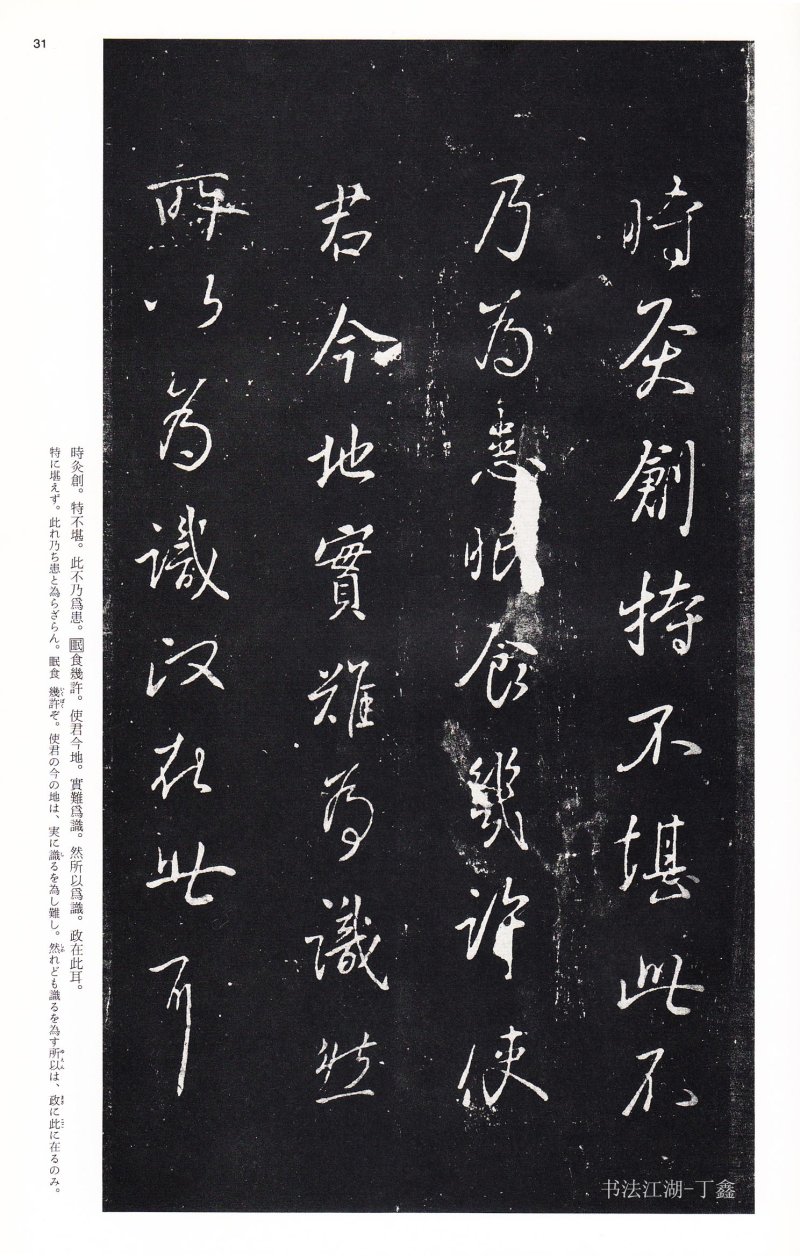 31
時灸創特不堪此不
乃為患眠食幾許使
君今地實難為識然
所以為識政在此耳
時灸創。特不堪。此不乃爲患。眠食幾許。使君今地。實難爲識。然所以爲識。政在此耳。
特に堪えず。此れ乃ち患と為らざらん。眠食幾許ぞ。使君の今の地は、実に識るを為し難し。然れども識るを為す所以は、政に此に在るのみ。
书法江湖-丁鑫